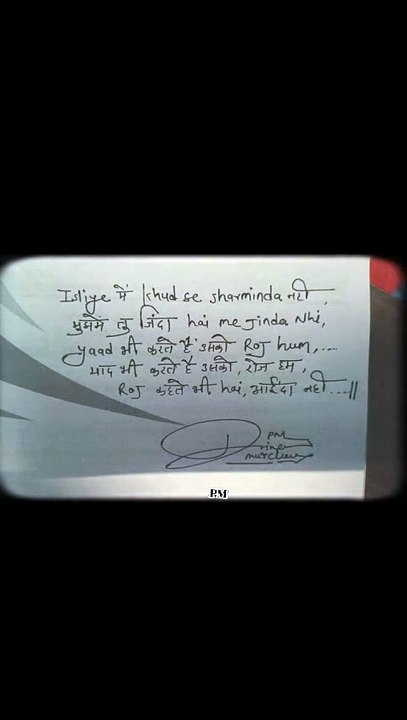 Isliye में khud se sharminda नही,
मुझमें तु जिंदा hai me Jinda Nhi,
yaad भी करते है उसको Roj hum,....
याद भी करते है उसको, रोज हम,
Roj कहते भी hai, आईंदा नही....||
PM